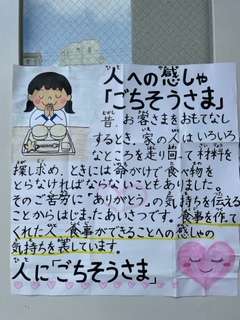 人への感しゃ
「ごちそうさま」
昔、お客さまをおもてなし
するとき、家の人はいろいろ
なところを走り回って材料を
探し求め、ときには命がけで食べ物を
とらなければならないこともありました。
そのご苦労に「ありがとう」の気持ちを伝える
ことからはじまったあいさつです。食事を作って
くれた人、食事ができることへの感しゃの
気持ちを表しています。
人に「ごちそうさま」